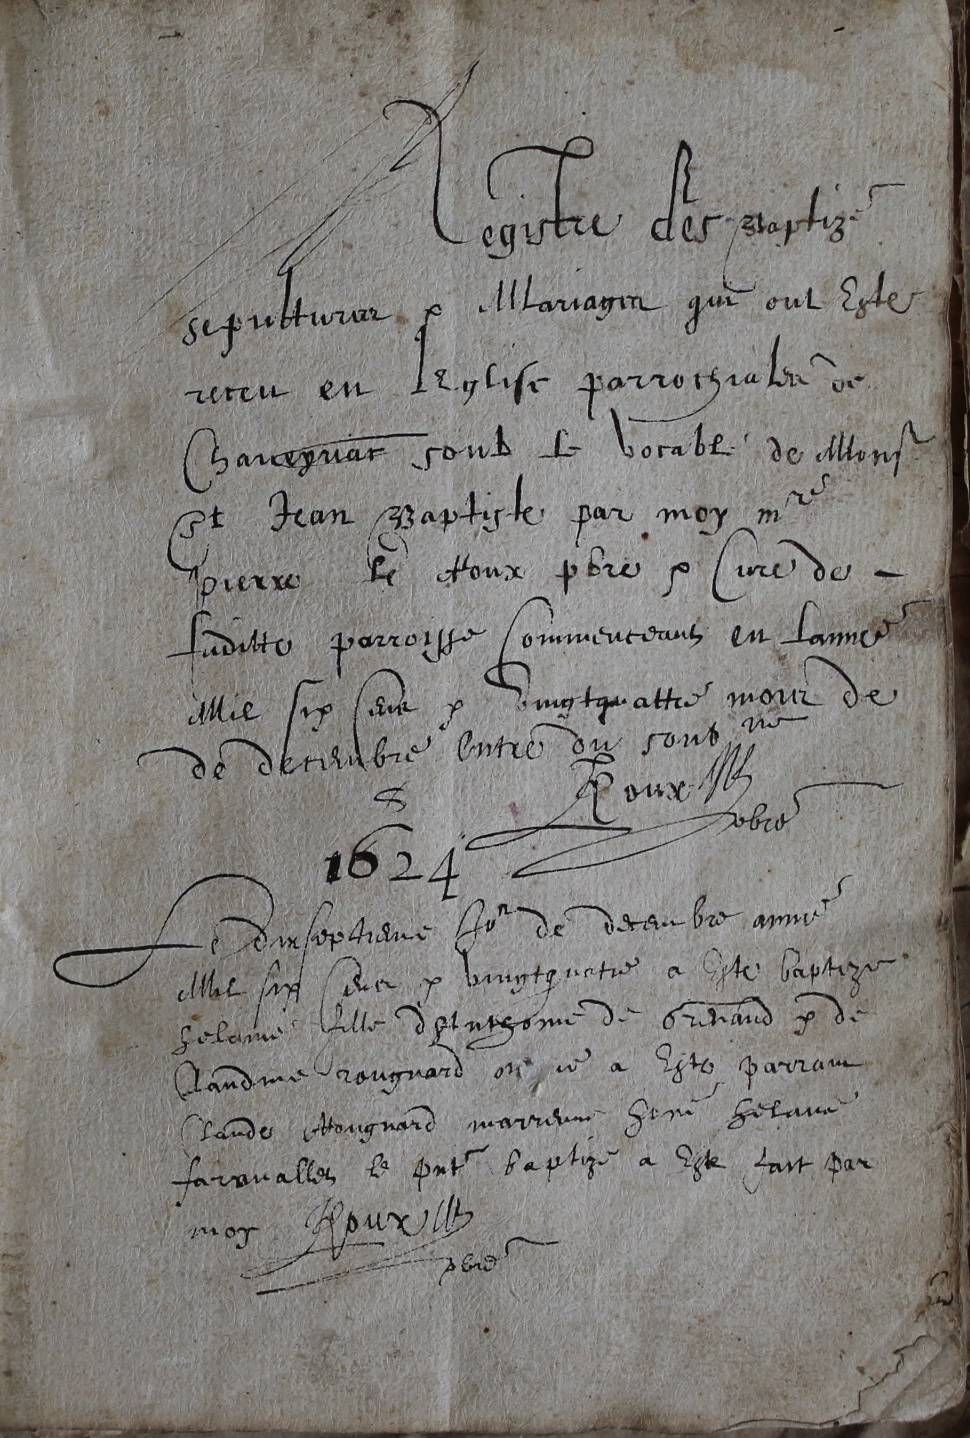 Registre des Baptizé
sepultures & Mariages qui ont Esté
receu en L'Eglise parrochialle de
Chaveynac soub le Vocable de Mons^r
St Jean Baptiste par moy m^re
pierre le Roux pbre & Curé de -
laditte parroisse Commenceant en lannee
Mil six Cens & vingtquattre mour de
de decembre entre ou soub^né
Roux
pbre
1624
Le dixseptieme Jo^r de decembre annee
Mil six Cens & vingtquatre a Esté baptizé
helaine fille de de & de
Claudine rougnard on ie a Esté parrain
Claude Rougnard marrienne helaine
le pnt baptizé a Esté fait par
moy Roux
pbre